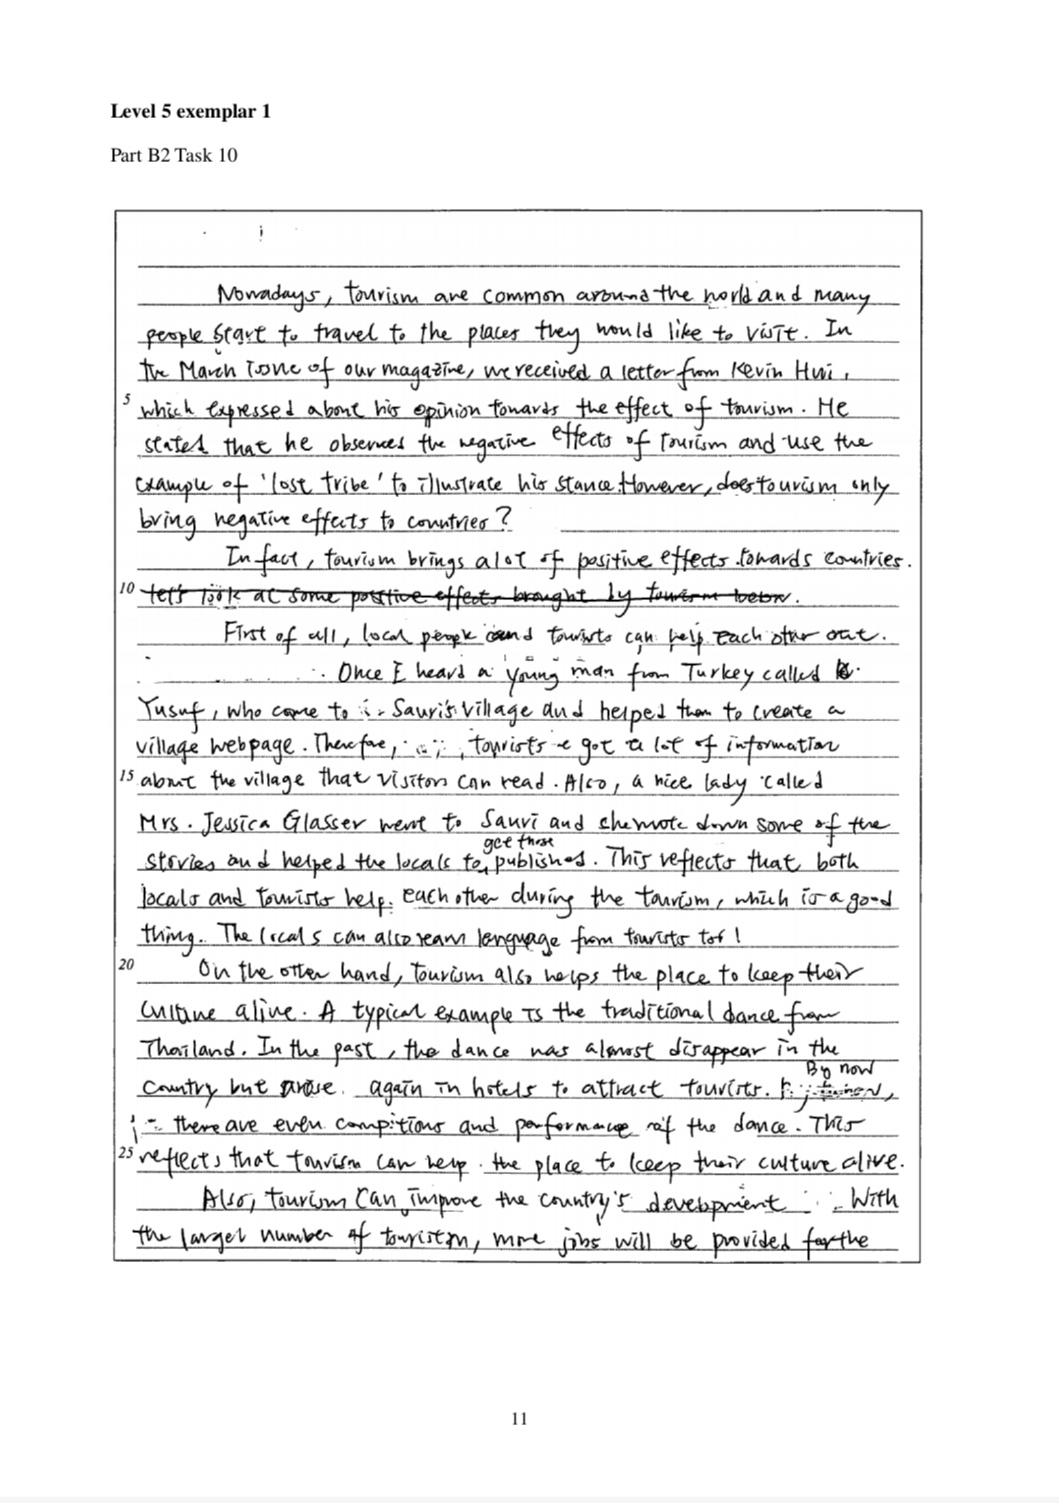 Level 5 exemplar 1
Part B2 Task 10
Nowadays, tourism are common around the world and many
people start to travel to the places they would like to visit. In
the March issue of our magazine, we received a letter from Kevin Hui,
5 which expressed about his opinion towards the effect of tourism. He
stated that he observed the negative effects of tourism and use the
example of 'lost tribe' to illustrate his stance. However, does tourism only
bring negative effects to countries?
In fact, tourism brings a lot of positive effects towards countries.
10 let's look at some positive effects brought by tourism below.
First of all, local people and tourists can help each other out.
Once I heard a young man from Turkey called
Yusuf, who came to Sauri's village and helped them to create a
village webpage. Therefore, tourists got a lot of information
15 about the village that visitors can read. Also, a nice lady called
Mrs. Jessica Glasser went to Sauri and she wrote down some of the
get those
stories and helped the locals to published. This reflects that both
locals and tourists help each other during the tourism, which is a good
thing. The locals can also learn language from tourists too!
20 On the other hand, tourism also helps the place to keep their
culture alive. A typical example is the traditional dance from
Thailand. In the past, the dance was almost disappear in the
By now
country but arose again in hotels to attract tourists.
there are even compitions and performance of the dance. This
25 reflects that tourism can help the place to keep their culture alive.
Also, tourism can improve the country's development. With
the larger number of tourism, more jobs will be provided for the
11